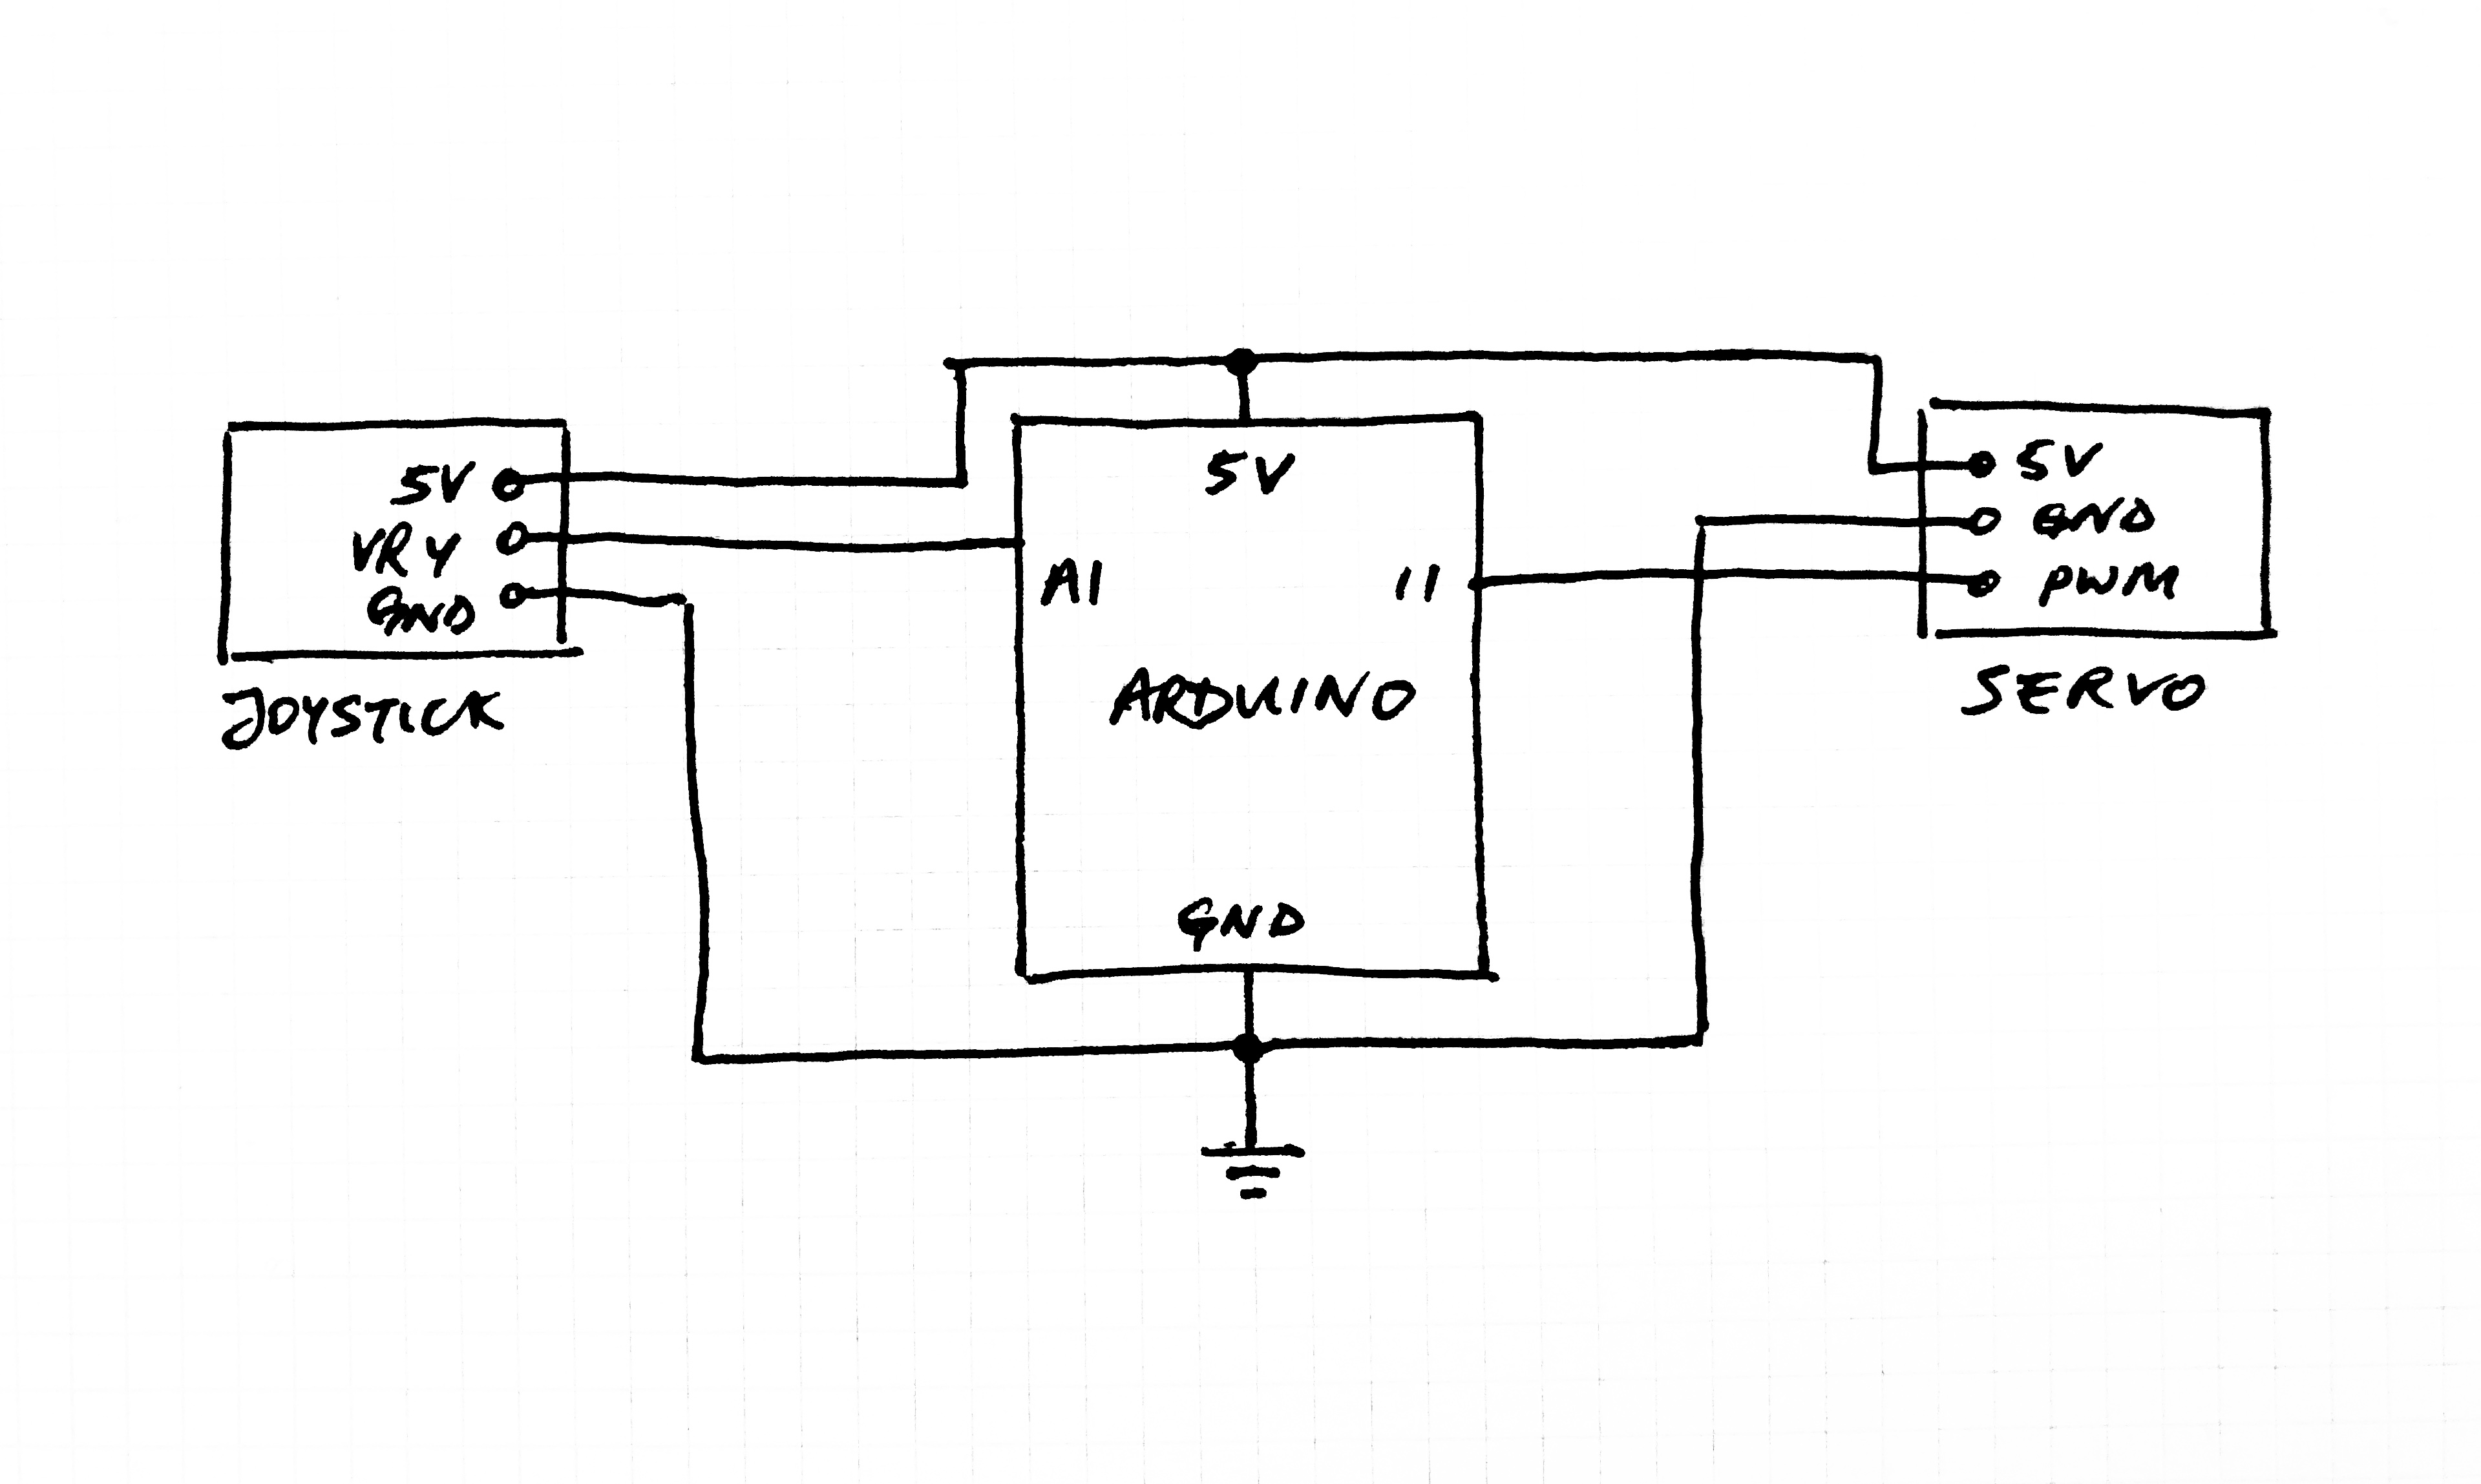 5V
VRY
GND
JOYSTICK
5V
A1
11
ARDUINO
GND
5V
GND
PWM
SERVO